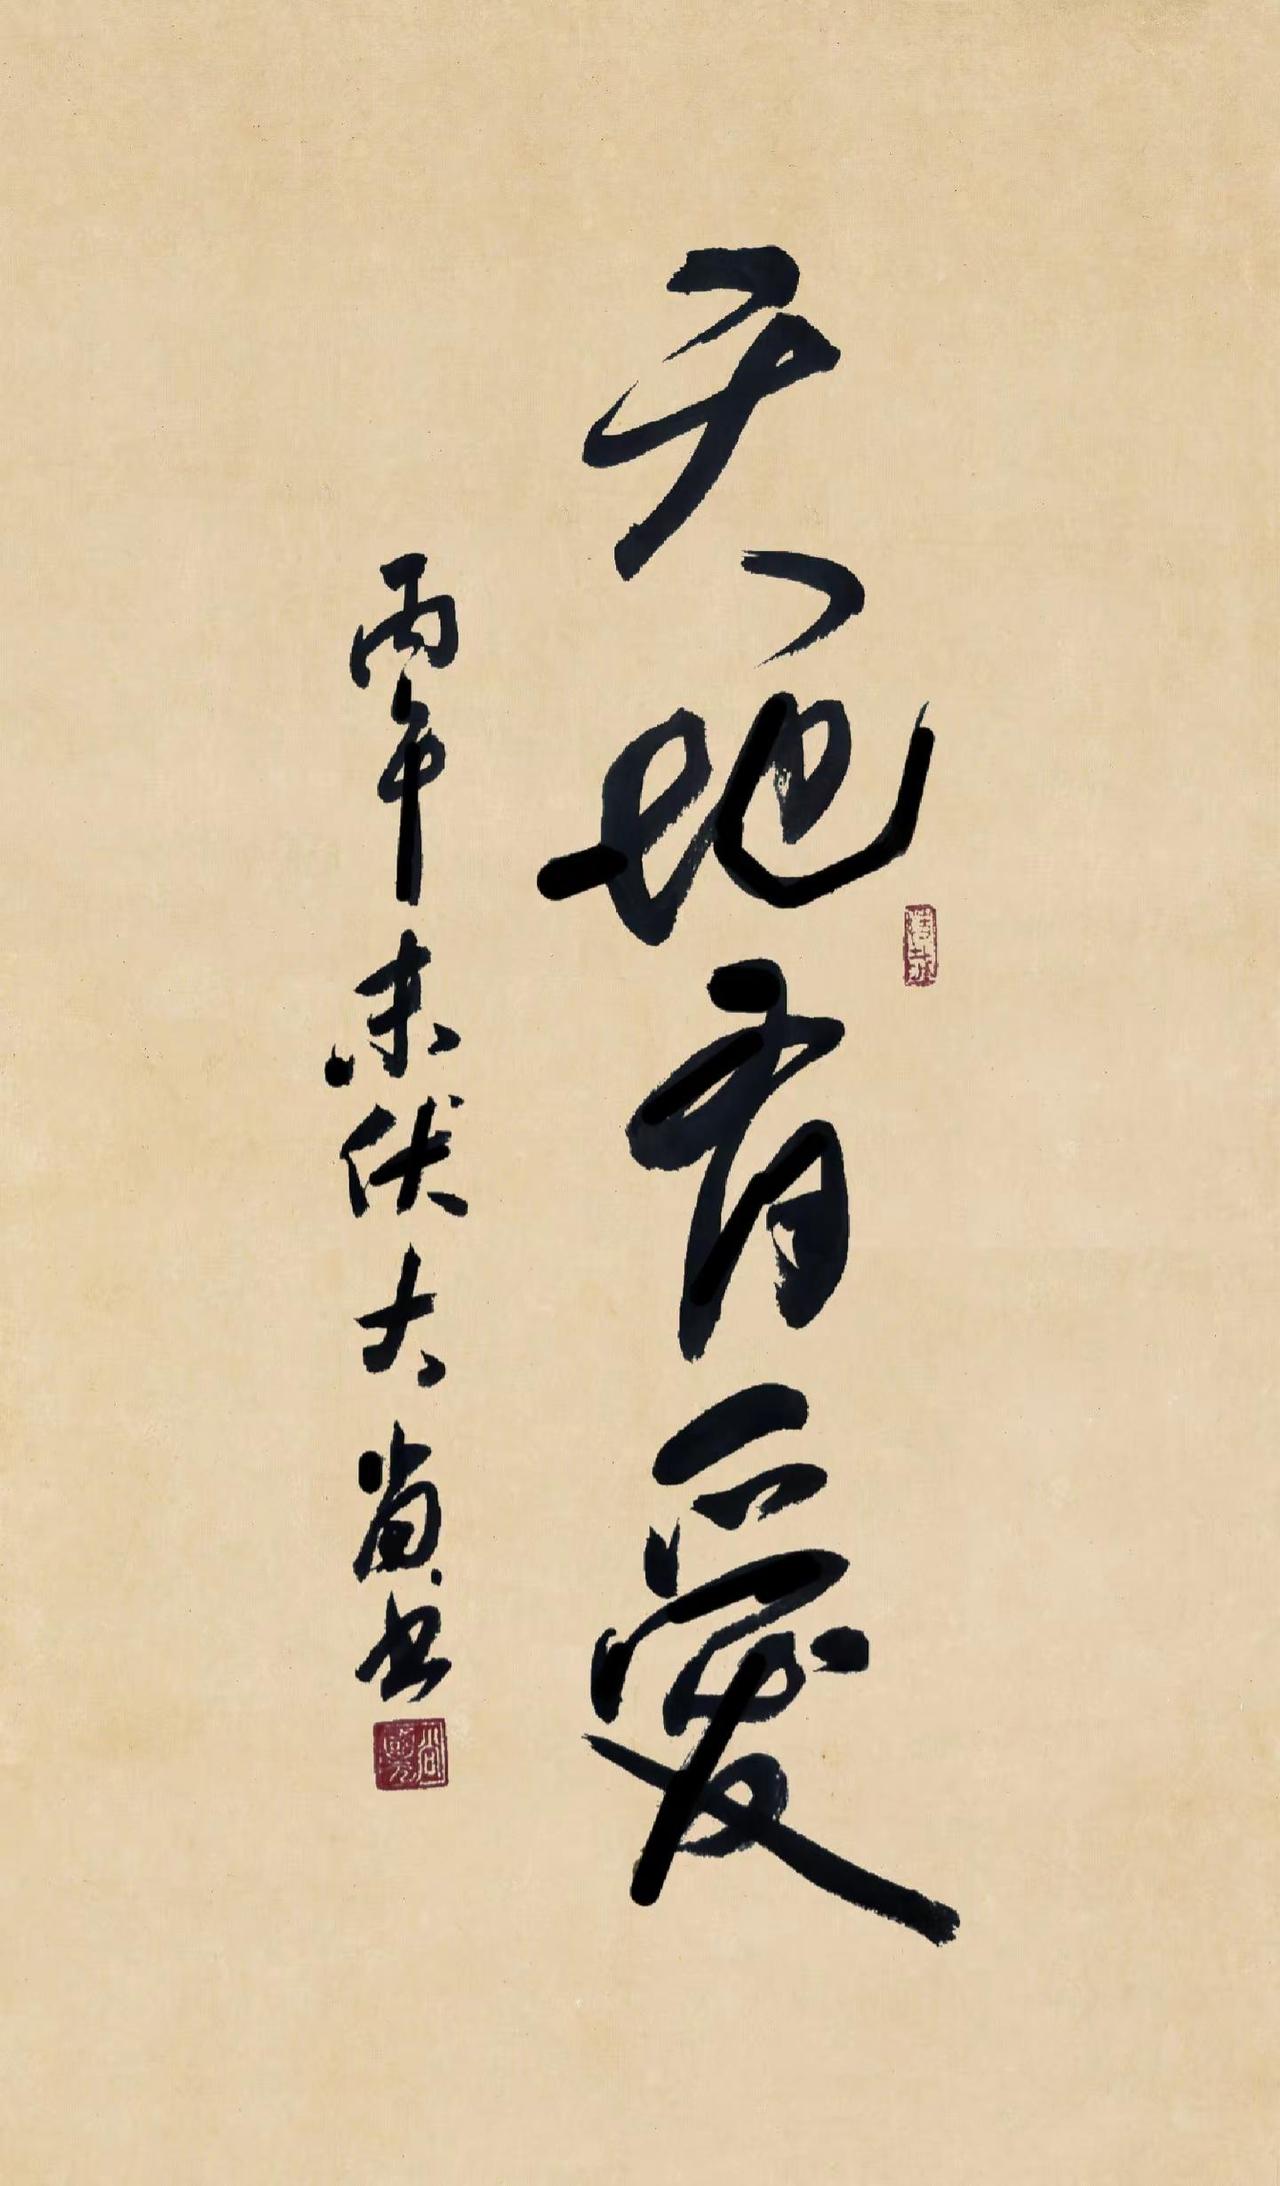 天地有愛
丙午末伏大尚書